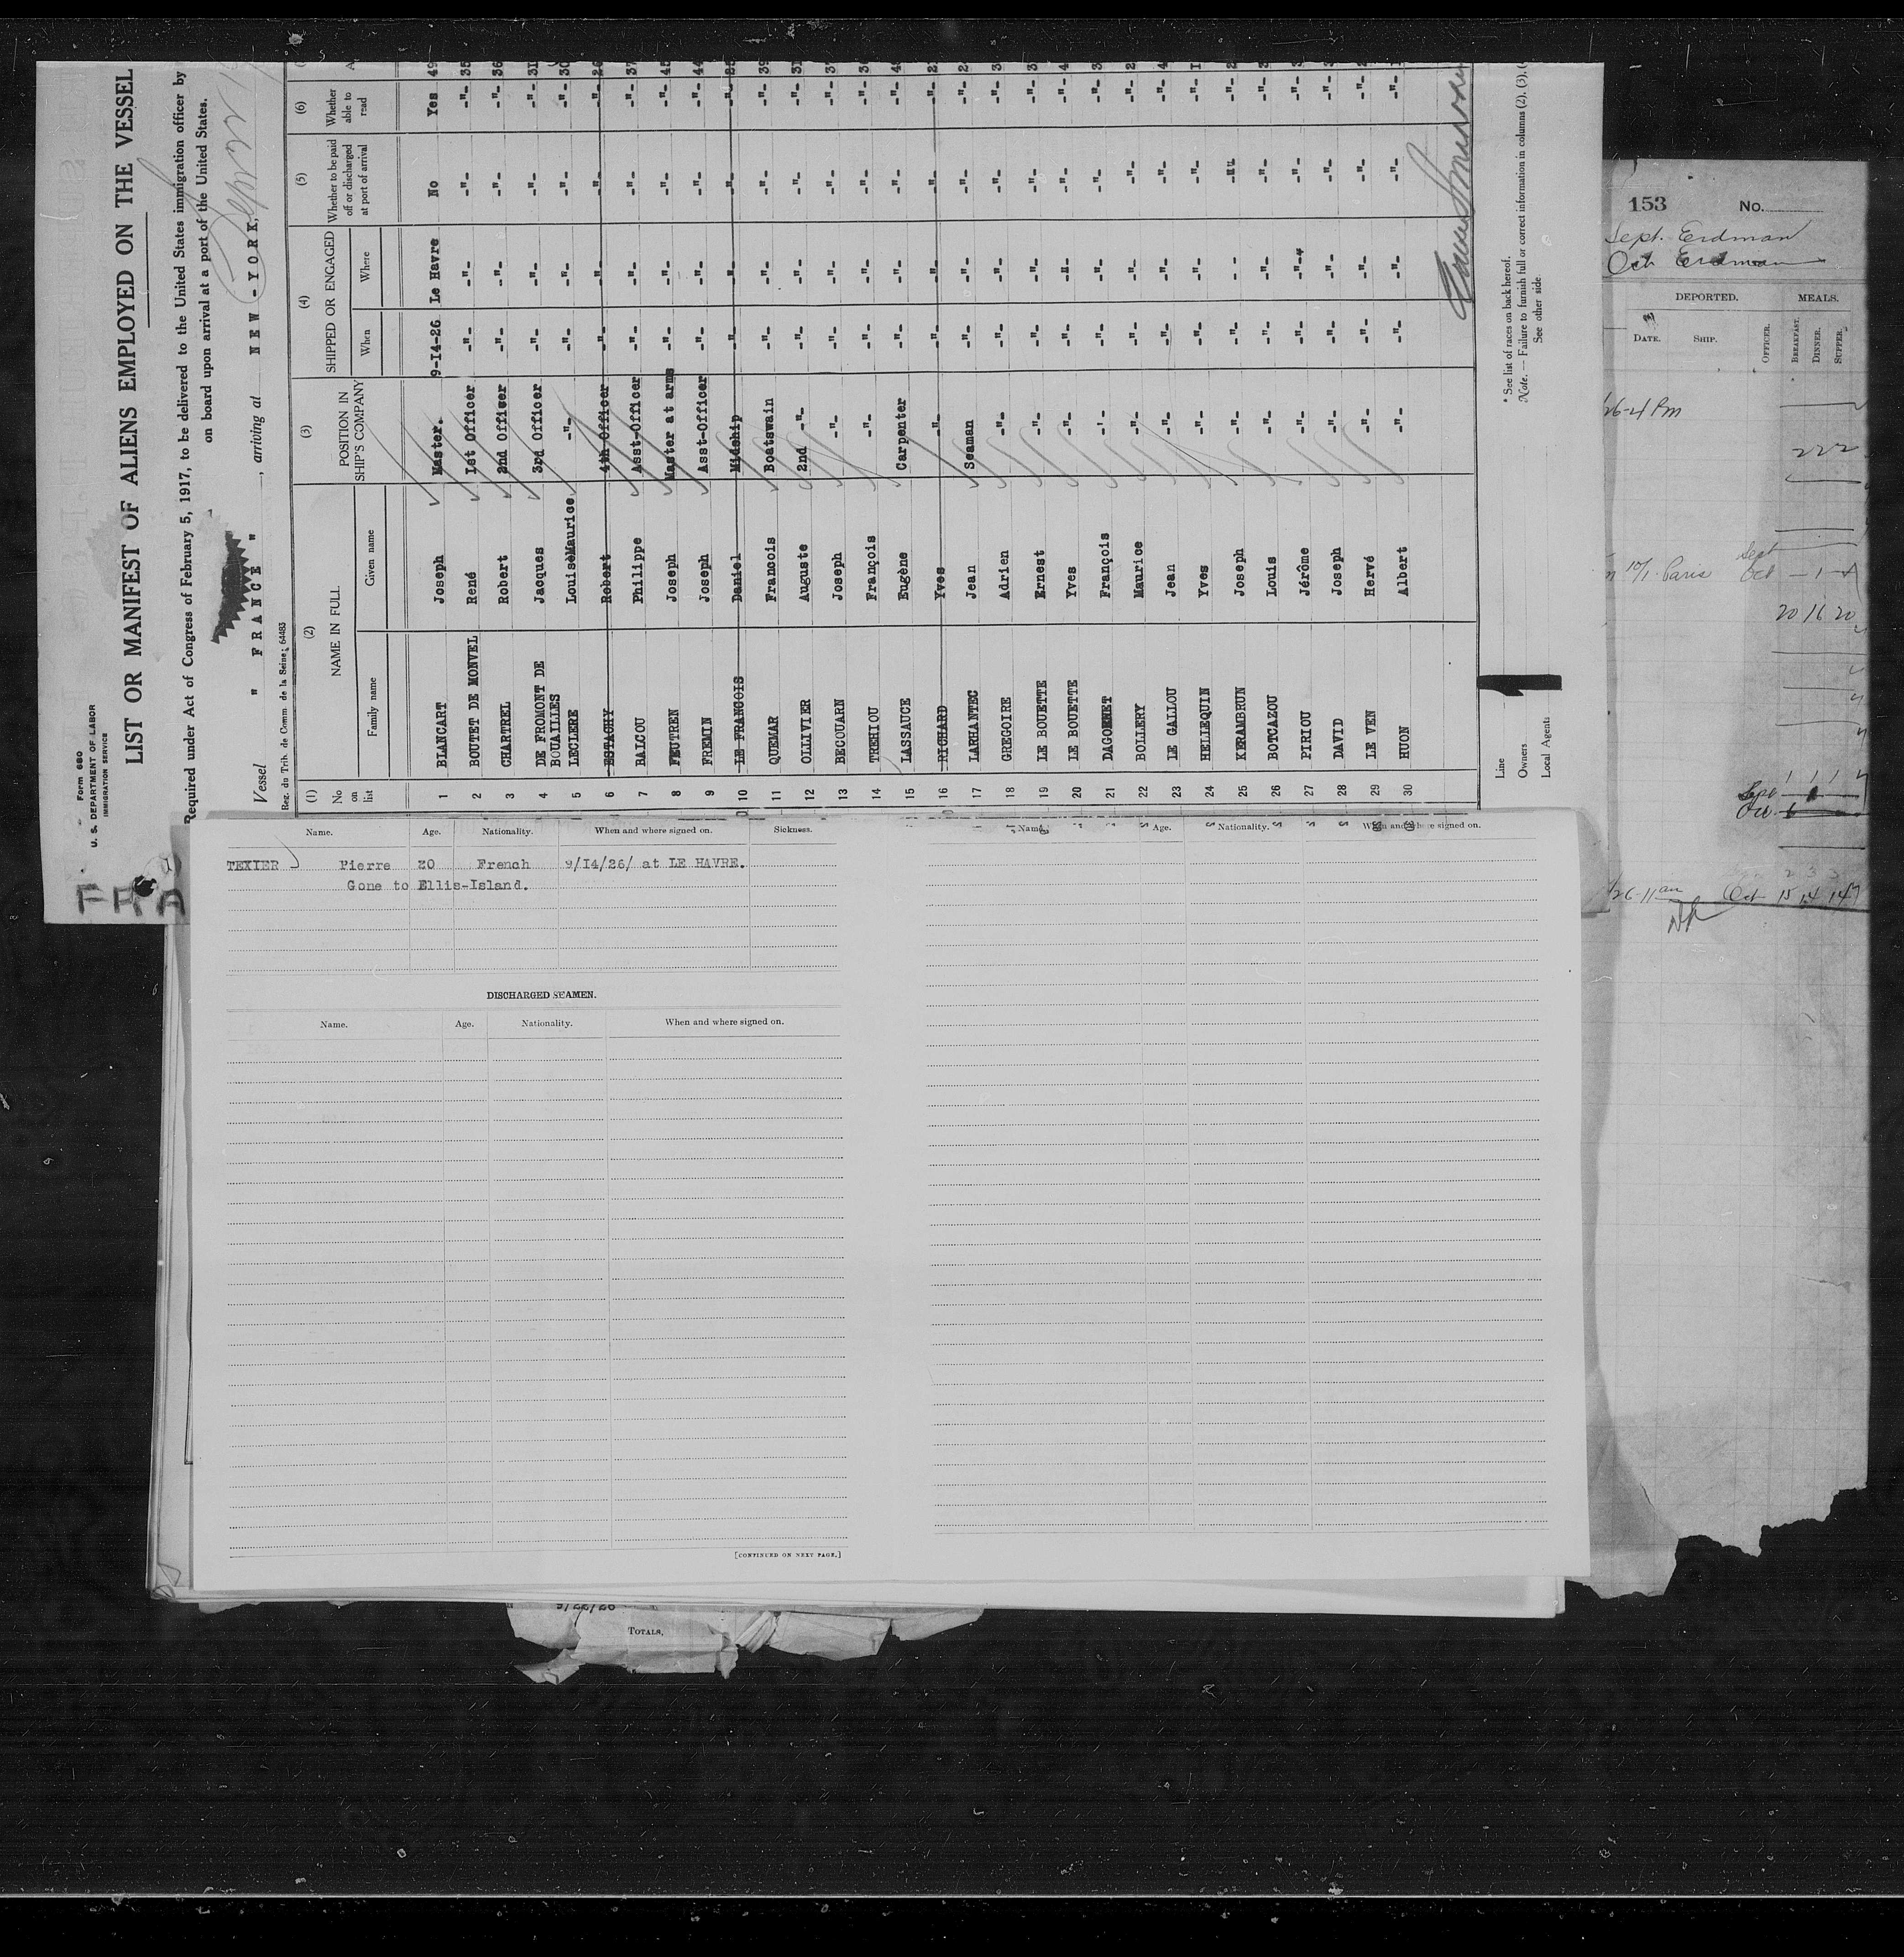 Form 680
U. S. DEPARTMENT OF LABOR
IMMIGRATION SERVICE
LIST OR MANIFEST OF ALIENS EMPLOYED ON THE VESSEL
Required under Act of Congress of February 5, 1917, to be delivered to the United States immigration officer by
on board upon arrival at a port of the United States.
Vessel " FRANCE " , arriving at NEW-YORK,
Reg. du Trib. de Comm. de la Seine; 64483
(1) (2) (3) (4) (5) (6)
No on list NAME IN FULL POSITION IN SHIP'S COMPANY SHIPPED OR ENGAGED Whether to be paid off or discharged at port of arrival Whether able to read
Family name Given name When Where
1 BLANCART Joseph Master. 9-14-26 Le Havre No Yes 49
2 BOUTET DE MONVEL René 1st Officer -"- -"- -"- -"- 35
3 CHARTREL Robert 2nd Officer -"- -"- -"- -"- 36
4 DE FROMONT DE BOUAILLES Jacques 3rd Officer -"- -"- -"- -"- 31
5 LECLERE Louis Maurice -"- -"- -"- -"- -"- 30
6 ESTACHY Robert 4th Officer -"- -"- -"- -"- 26
7 BALCOU Philippe Asst-Officer -"- -"- -"- -"- 37
8 FEUTREN Joseph Master at arms -"- -"- -"- -"- 45
9 FREMIN Joseph Asst-Officer -"- -"- -"- -"- 44
10 LE FRANCOIS Daniel Midship -"- -"- -"- -"-
11 QUEMAR Francois Boatswain -"- -"- -"- -"- 39
12 OLLIVIER Auguste 2nd -"- -"- -"- -"- -"- 31
13 BECOUARN Joseph -"- -"- -"- -"- -"-
14 TREHIOU François -"- -"- -"- -"- -"-
15 LASSAUCE Eugène Carpenter -"- -"- -"- -"-
16 RICHARD Yves -"- -"- -"- -"- -"-
17 LARHANTEC Jean Seaman -"- -"- -"- -"-
18 GREGOIRE Adrien -"- -"- -"- -"- -"-
19 LE BOUETTE Ernest -"- -"- -"- -"- -"-
20 LE BOUETTE Yves -"- -"- -"- -"- -"-
21 DAGORNET François -"- -"- -"- -"- -"-
22 BOLLERY Maurice -"- -"- -"- -"- -"-
23 LE GALLOU Jean -"- -"- -"- -"- -"-
24 HELLEQUIN Yves -"- -"- -"- -"- -"-
25 KERAMBRUN Joseph -"- -"- - - -"- -"-
26 BOTCAZOU Louis -"- -"- -"- -"- -"-
27 PIRIOU Jérôme -"- -"- -"- -"- -"-
28 DAVID Joseph -"- -"- -"- -"- -"-
29 LE VEN Hervé -"- -"- -"- -"- -"-
30 HUON Albert -"- -"- -"- -"- -"-
Line
Owners
Local Agents
* See list of races on back hereof.
Note. — Failure to furnish full or correct information in columns (2), (3),
See other side
FRA
153 No.
Sept. Erdman
Oct Erdman
DEPORTED. MEALS.
DATE. SHIP. OFFICER. BREAKFAST. DINNER. SUPPER.
26-4 Pm
2 2 2
Sept
10/1 Paris Oct - 1 -
20 16 20
1 1 1
26-11 am Oct 15 14 14
Name. Age. Nationality. When and where signed on. Sickness.
TEXIER Pierre 20 French 9/14/26/ at LE HAVRE.
Gone to Ellis-Island.
DISCHARGED SEAMEN.
Name. Age. Nationality. When and where signed on.
[CONTINUED ON NEXT PAGE.]
Name. Age. Nationality. When and where signed on.
9/22/26
TOTALS,